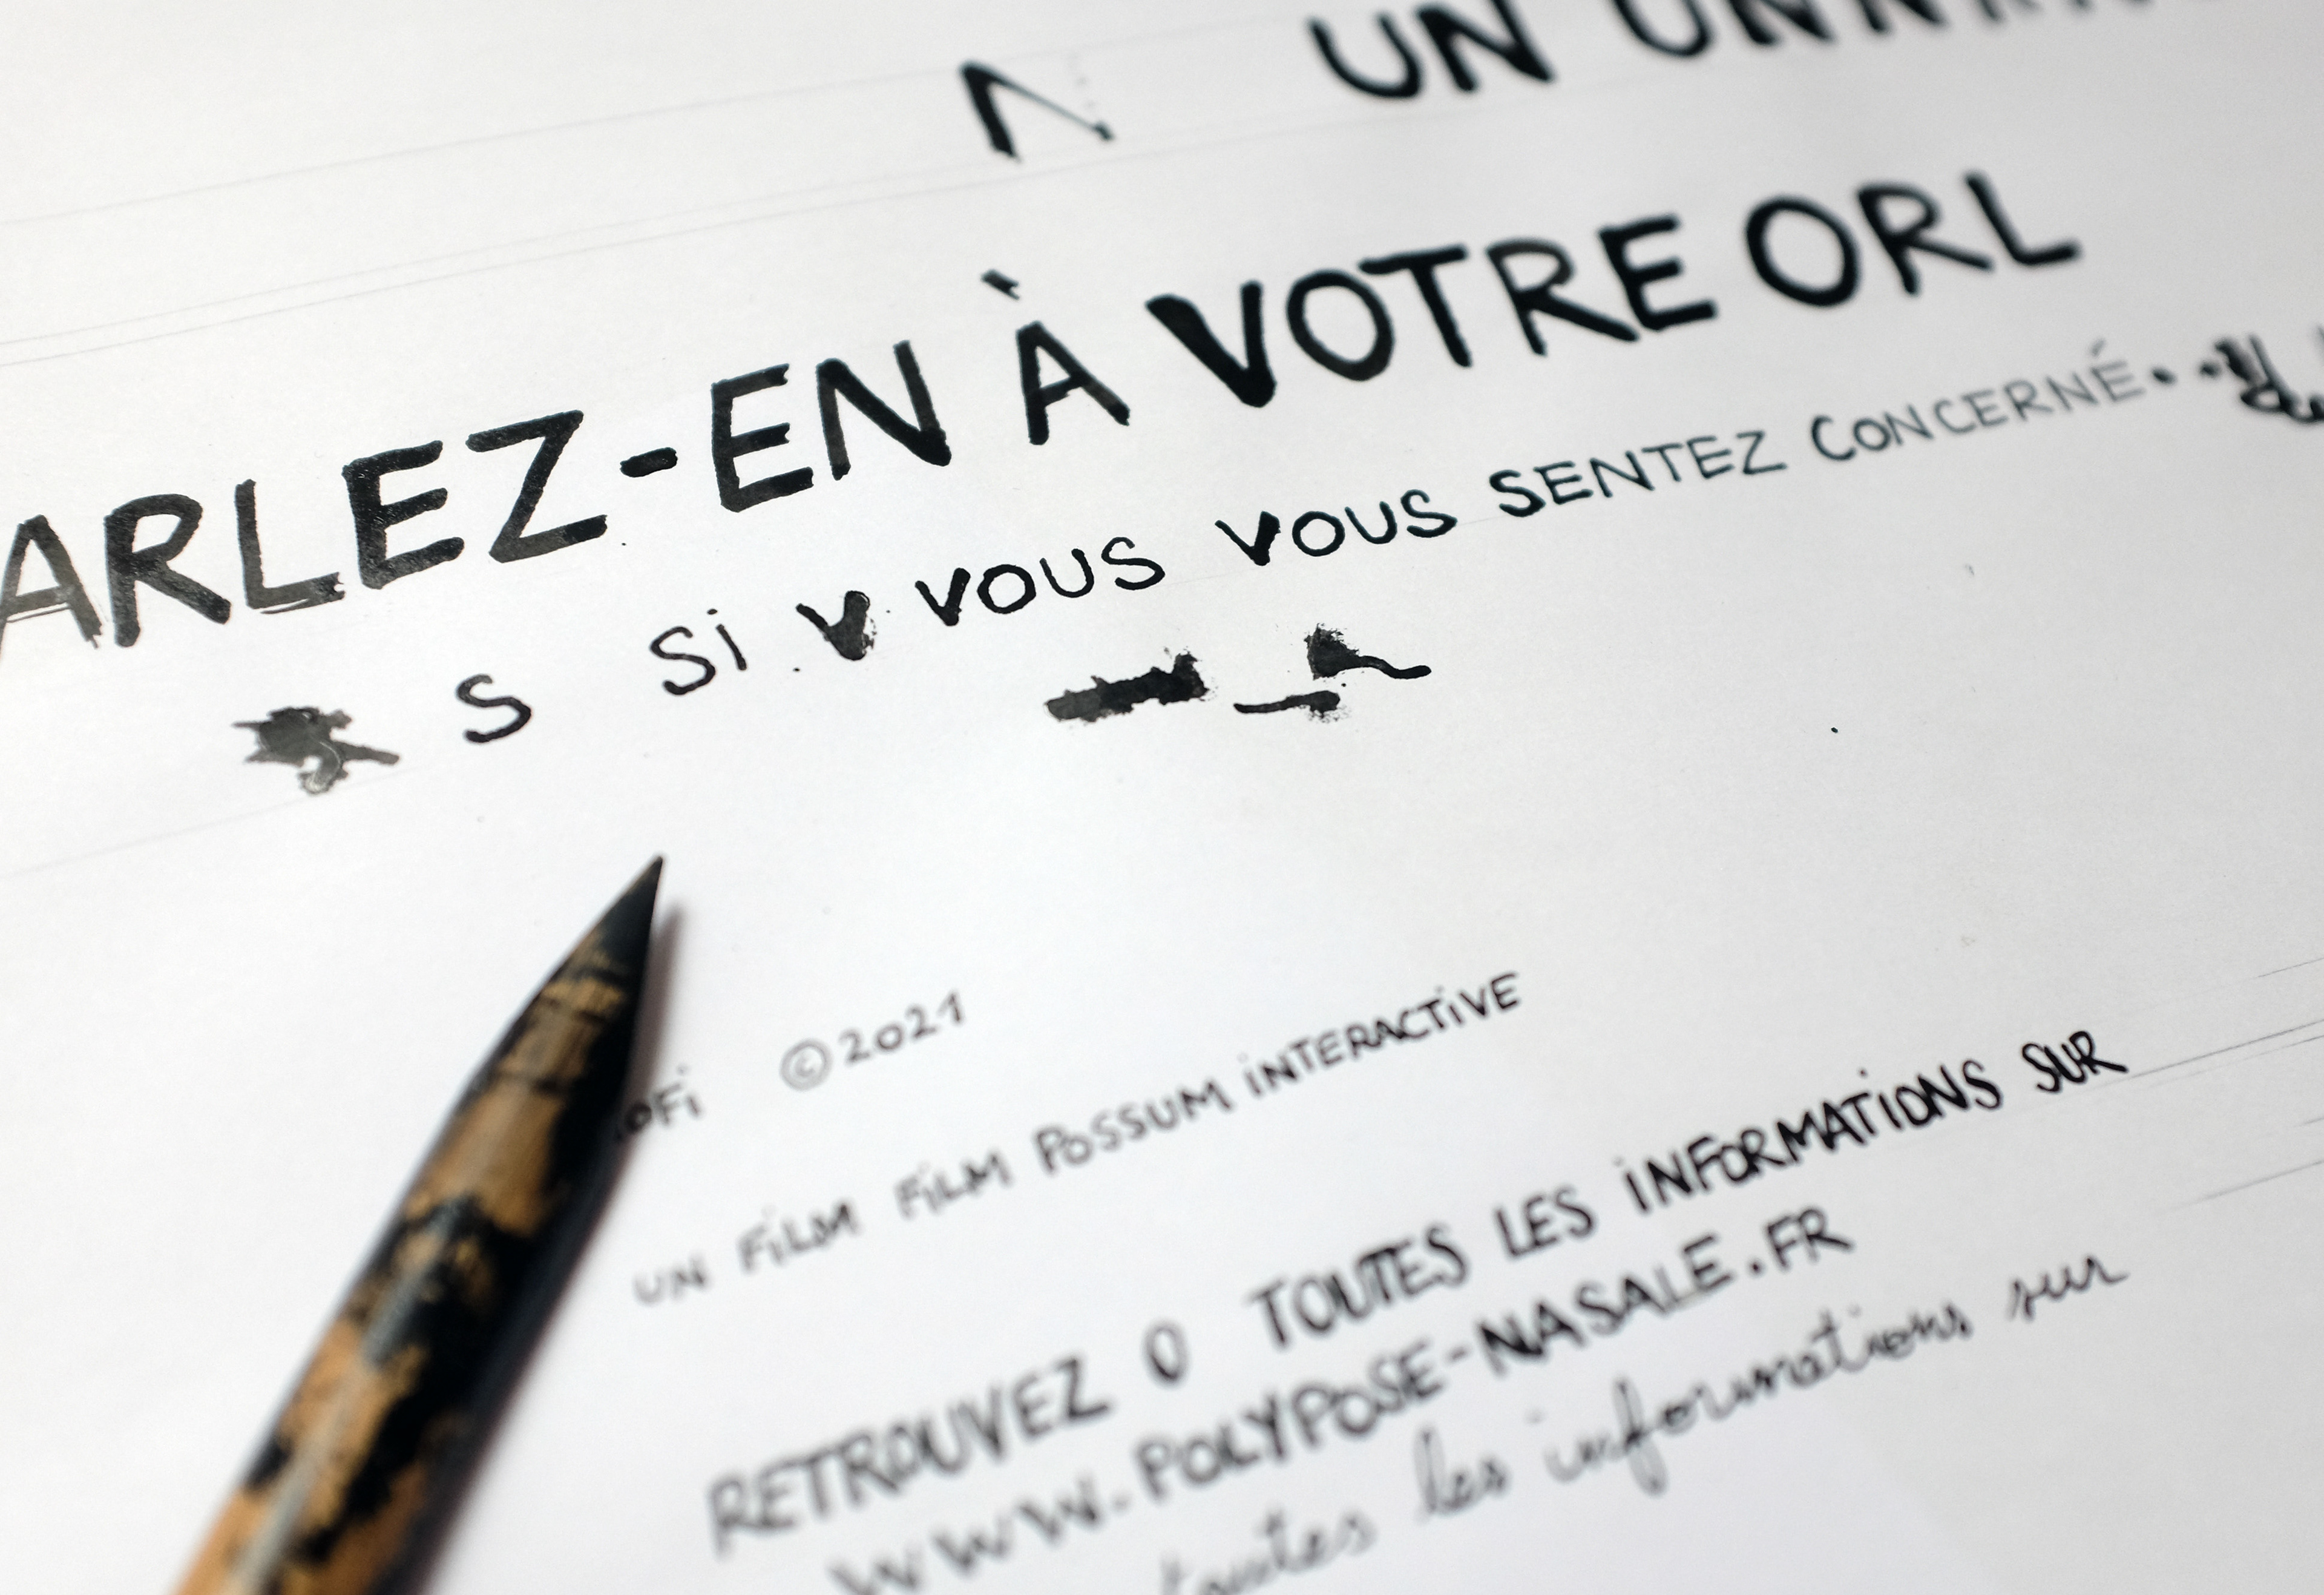 UN
ARLEZ-EN À VOTRE ORL
S Si V VOUS VOUS SENTEZ CONCERNÉ..
OFi ©2021
UN FiLM FiLM POSSUM iNTERACTiVE
RETROUVEZ O TOUTES LES iNFORMATiONS SUR
WWW.POLYPOSE-NASALE.FR
toutes les informations sur